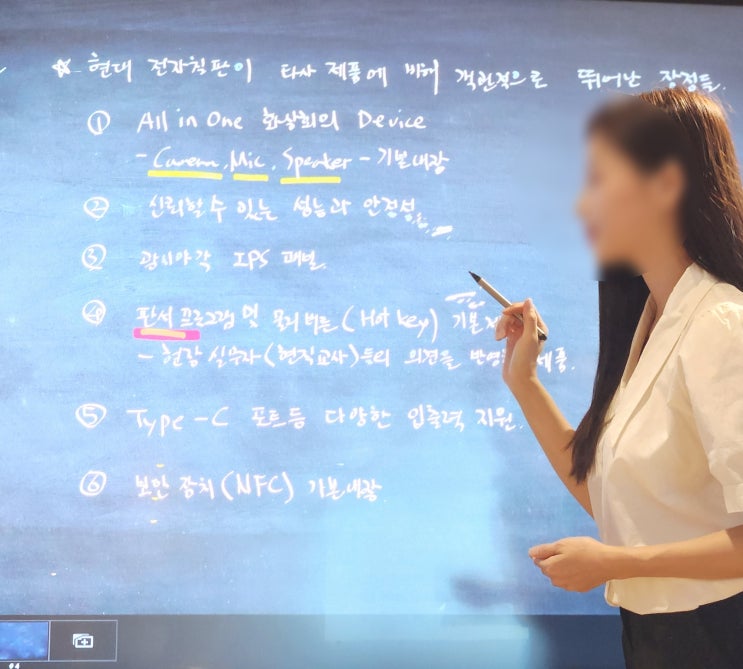 ☆ 현대 전자칠판이 타사 제품에 비해 객관적으로 뛰어난 장점들.
① All in One 화상회의 Device
- Camera, Mic, Speaker - 기본내장
② 신뢰할 수 있는 성능과 안정성
③ 광시야각 IPS 패널.
④ 판서 프로그램 및 물리버튼 (Hot key) 기본
- 현장 실무자 (현직교사) 등의 의견을 반영 제품.
⑤ Type-C 포트등 다양한 입출력 지원.
⑥ 보안 장치 (NFC) 기본내장